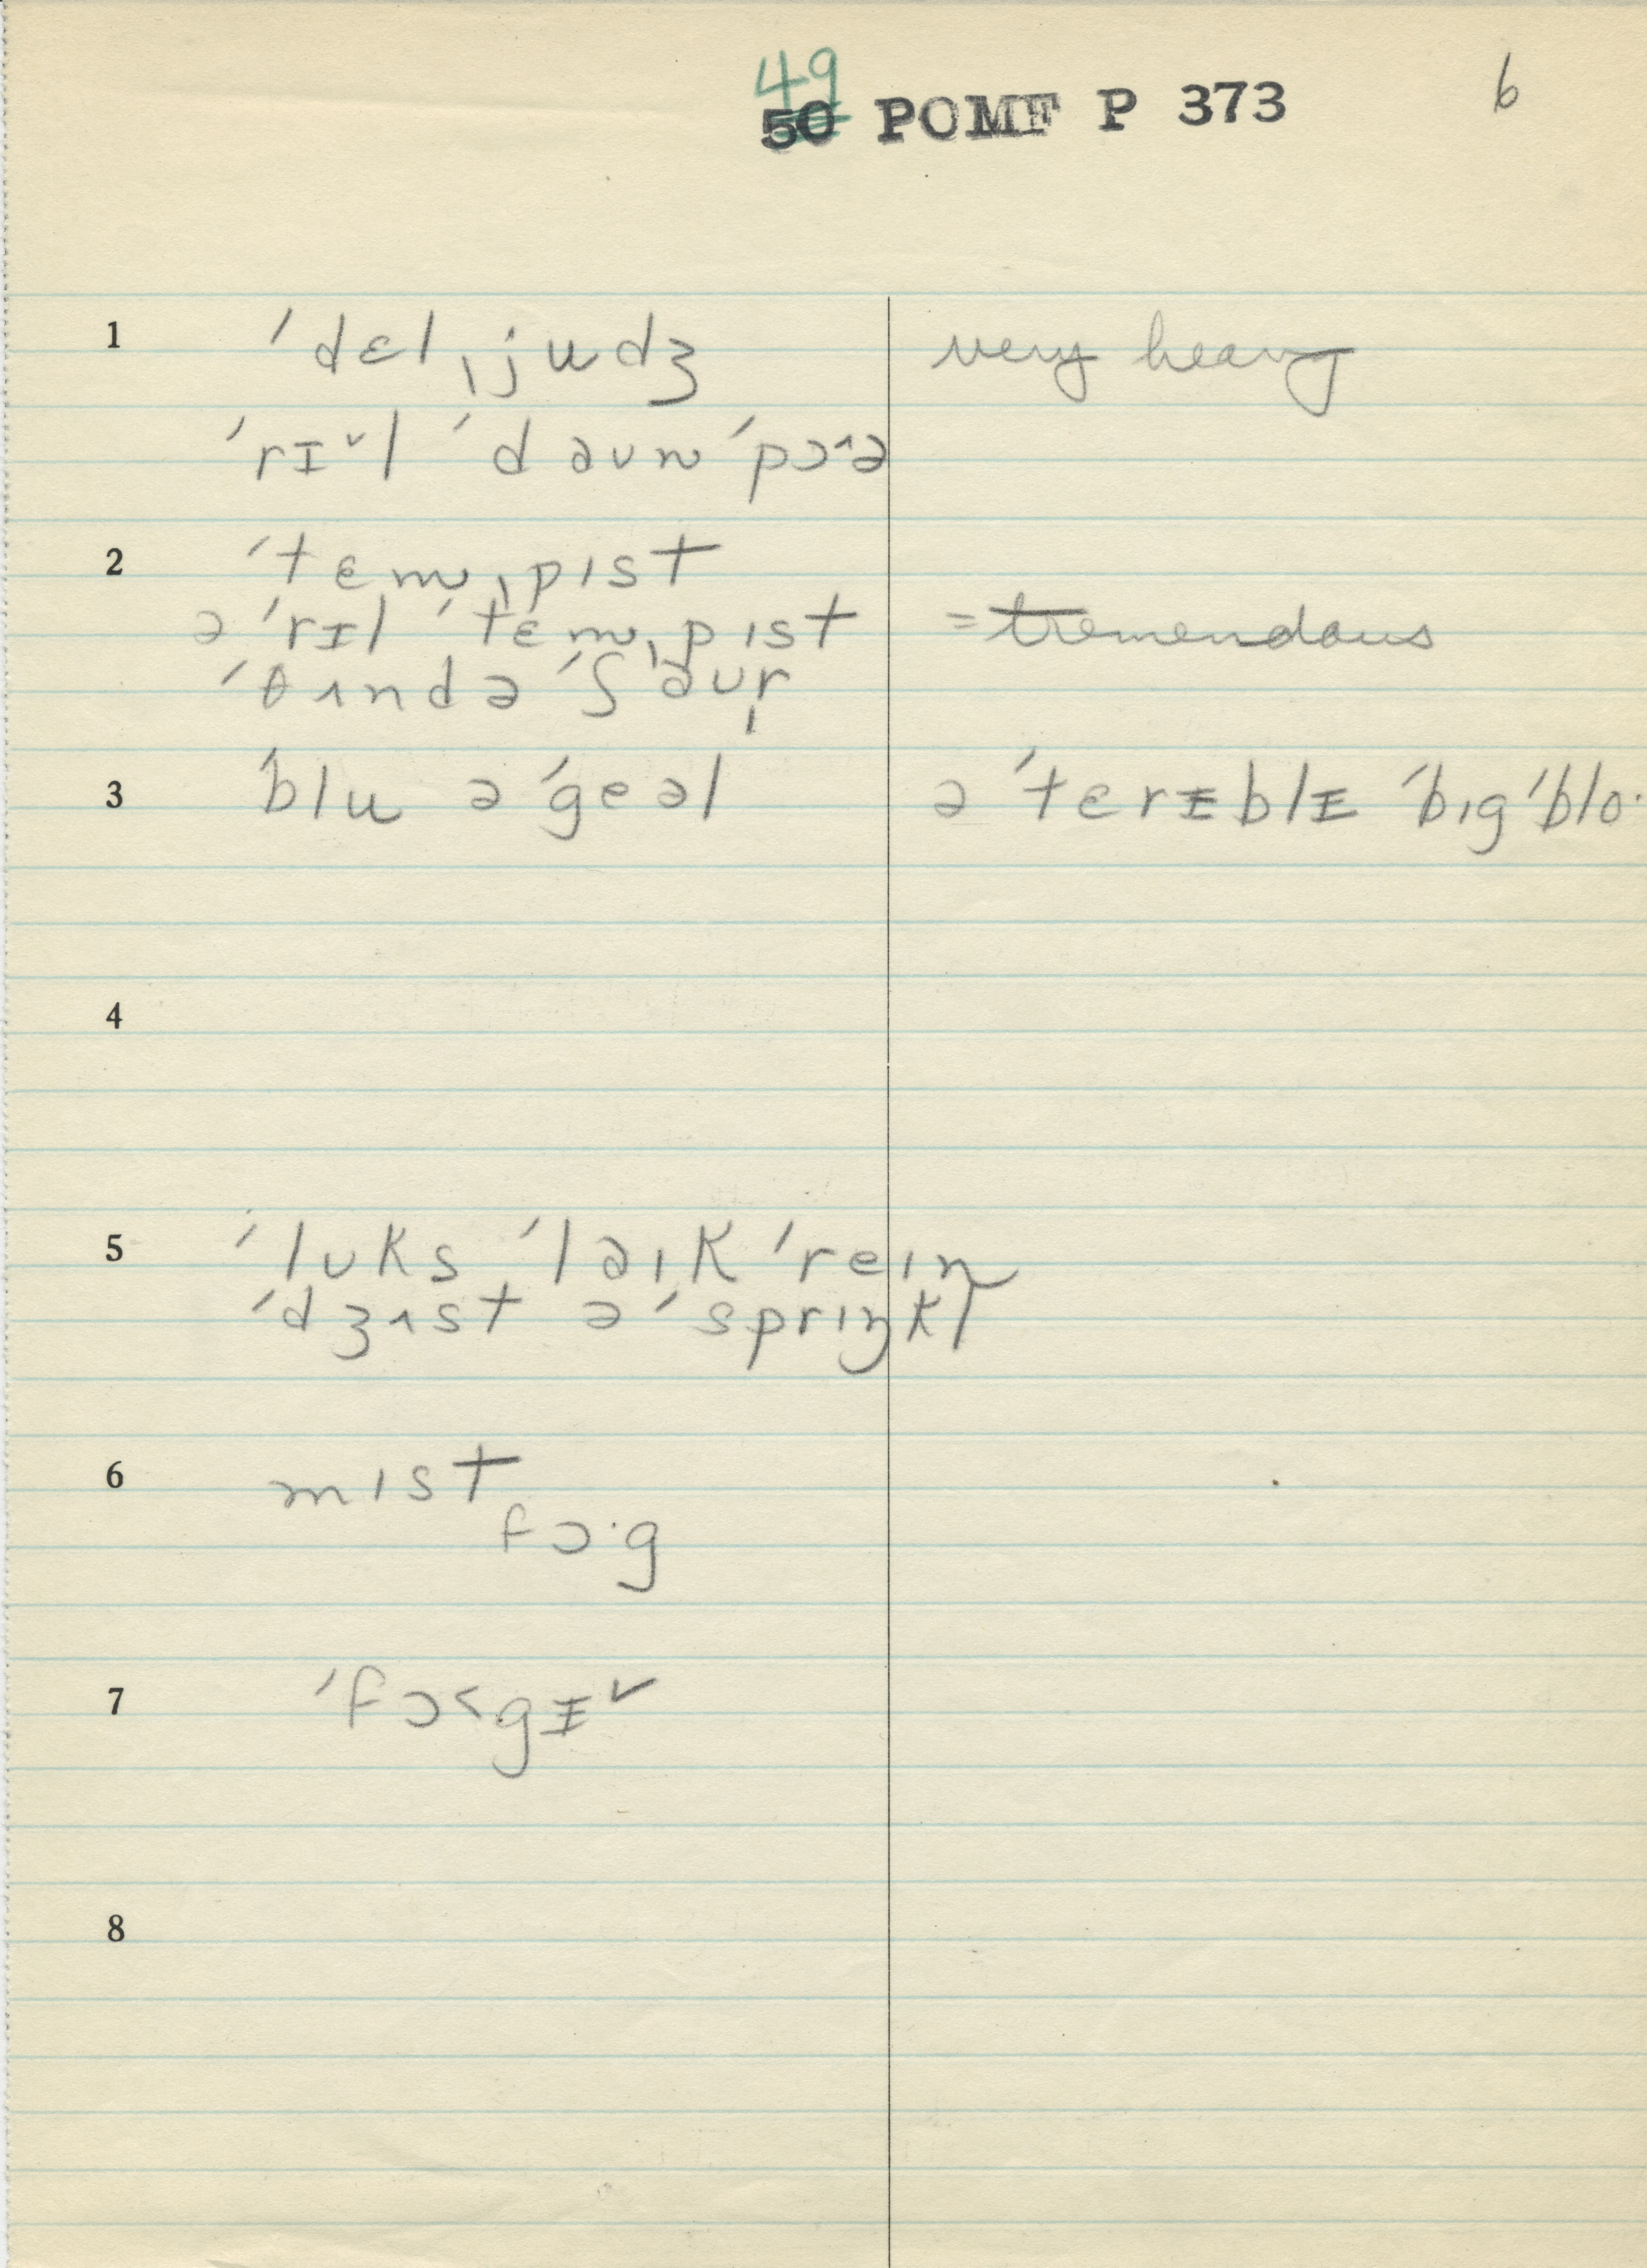 49
50 POMF P 373 6
1 ˈdɛlˌjudʒ very heavy
ˈrɪˇl ˈdəʊn ˈpɔ^ə
2 ˈtɛmˌpɪst
ə ˈrɪl ˈtɛmˌpɪst = tremendous
ˈθʌndə ˈʃəʊr̩
3 ˈblu ə ˈgeəl ə ˈtɛrᵻblᵻ ˈbɪg ˈblo·
4
5 ˈlʊks ˈləɪk ˈreɪn
ˈdʒʌst ə ˈsprɪŋkl
6 mɪst
fɔ·g
7 ˈfɔ˂gᵻˇ
8